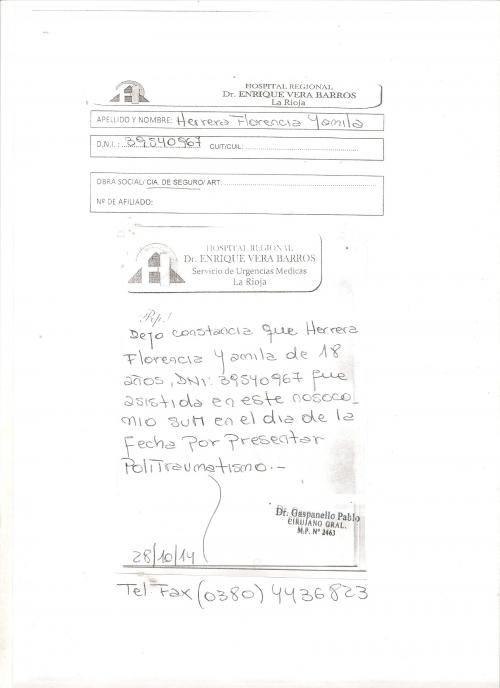 HOSPITAL REGIONAL
Dr. ENRIQUE VERA BARROS
La Rioja
APELLIDO Y NOMBRE: Herrera Florencia Yamila
D.N.I. : 39540967 CUIT/CUIL:
OBRA SOCIAL/ CIA. DE SEGURO/ ART:
Nº DE AFILIADO:
HOSPITAL REGIONAL
Dr. ENRIQUE VERA BARROS
Servicio de Urgencias Medicas
La Rioja
Rp.!
Dejo constancia que Herrera
Florencia Yamila de 18
años, DNI: 39540967 fue
asistida en este nosoco-
mio SUM en el dia de la
Fecha Por Presentar
PoliTraumatismo.-
Dr. Gaspanello Pablo
CIRUJANO GRAL.
M.P. Nº 2463
28/10/14
Tel. Fax (0380) 4436823